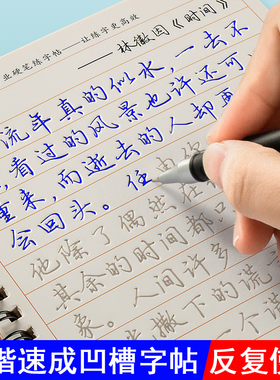 业硬笔练字帖——让练字更高效
——林徽因《时间》
流年真的似水，一去不
，看过的风景也许还可
重来，而逝去的人却再
会回头。任由
他除了偶然在
其余的时间都只
象。人间许多
撒下的谎
一个
楷速成凹槽字帖
反复使